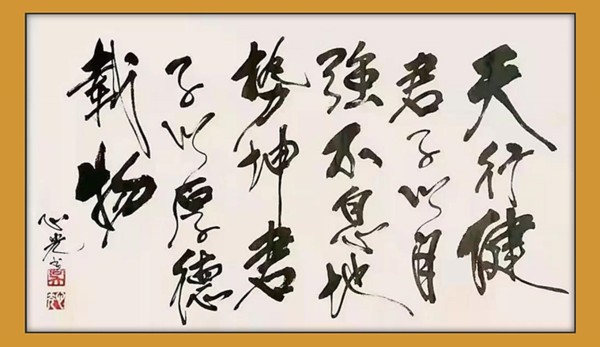 天行健
君子以自
强不息地
势坤君
子以厚德
载物
心光书